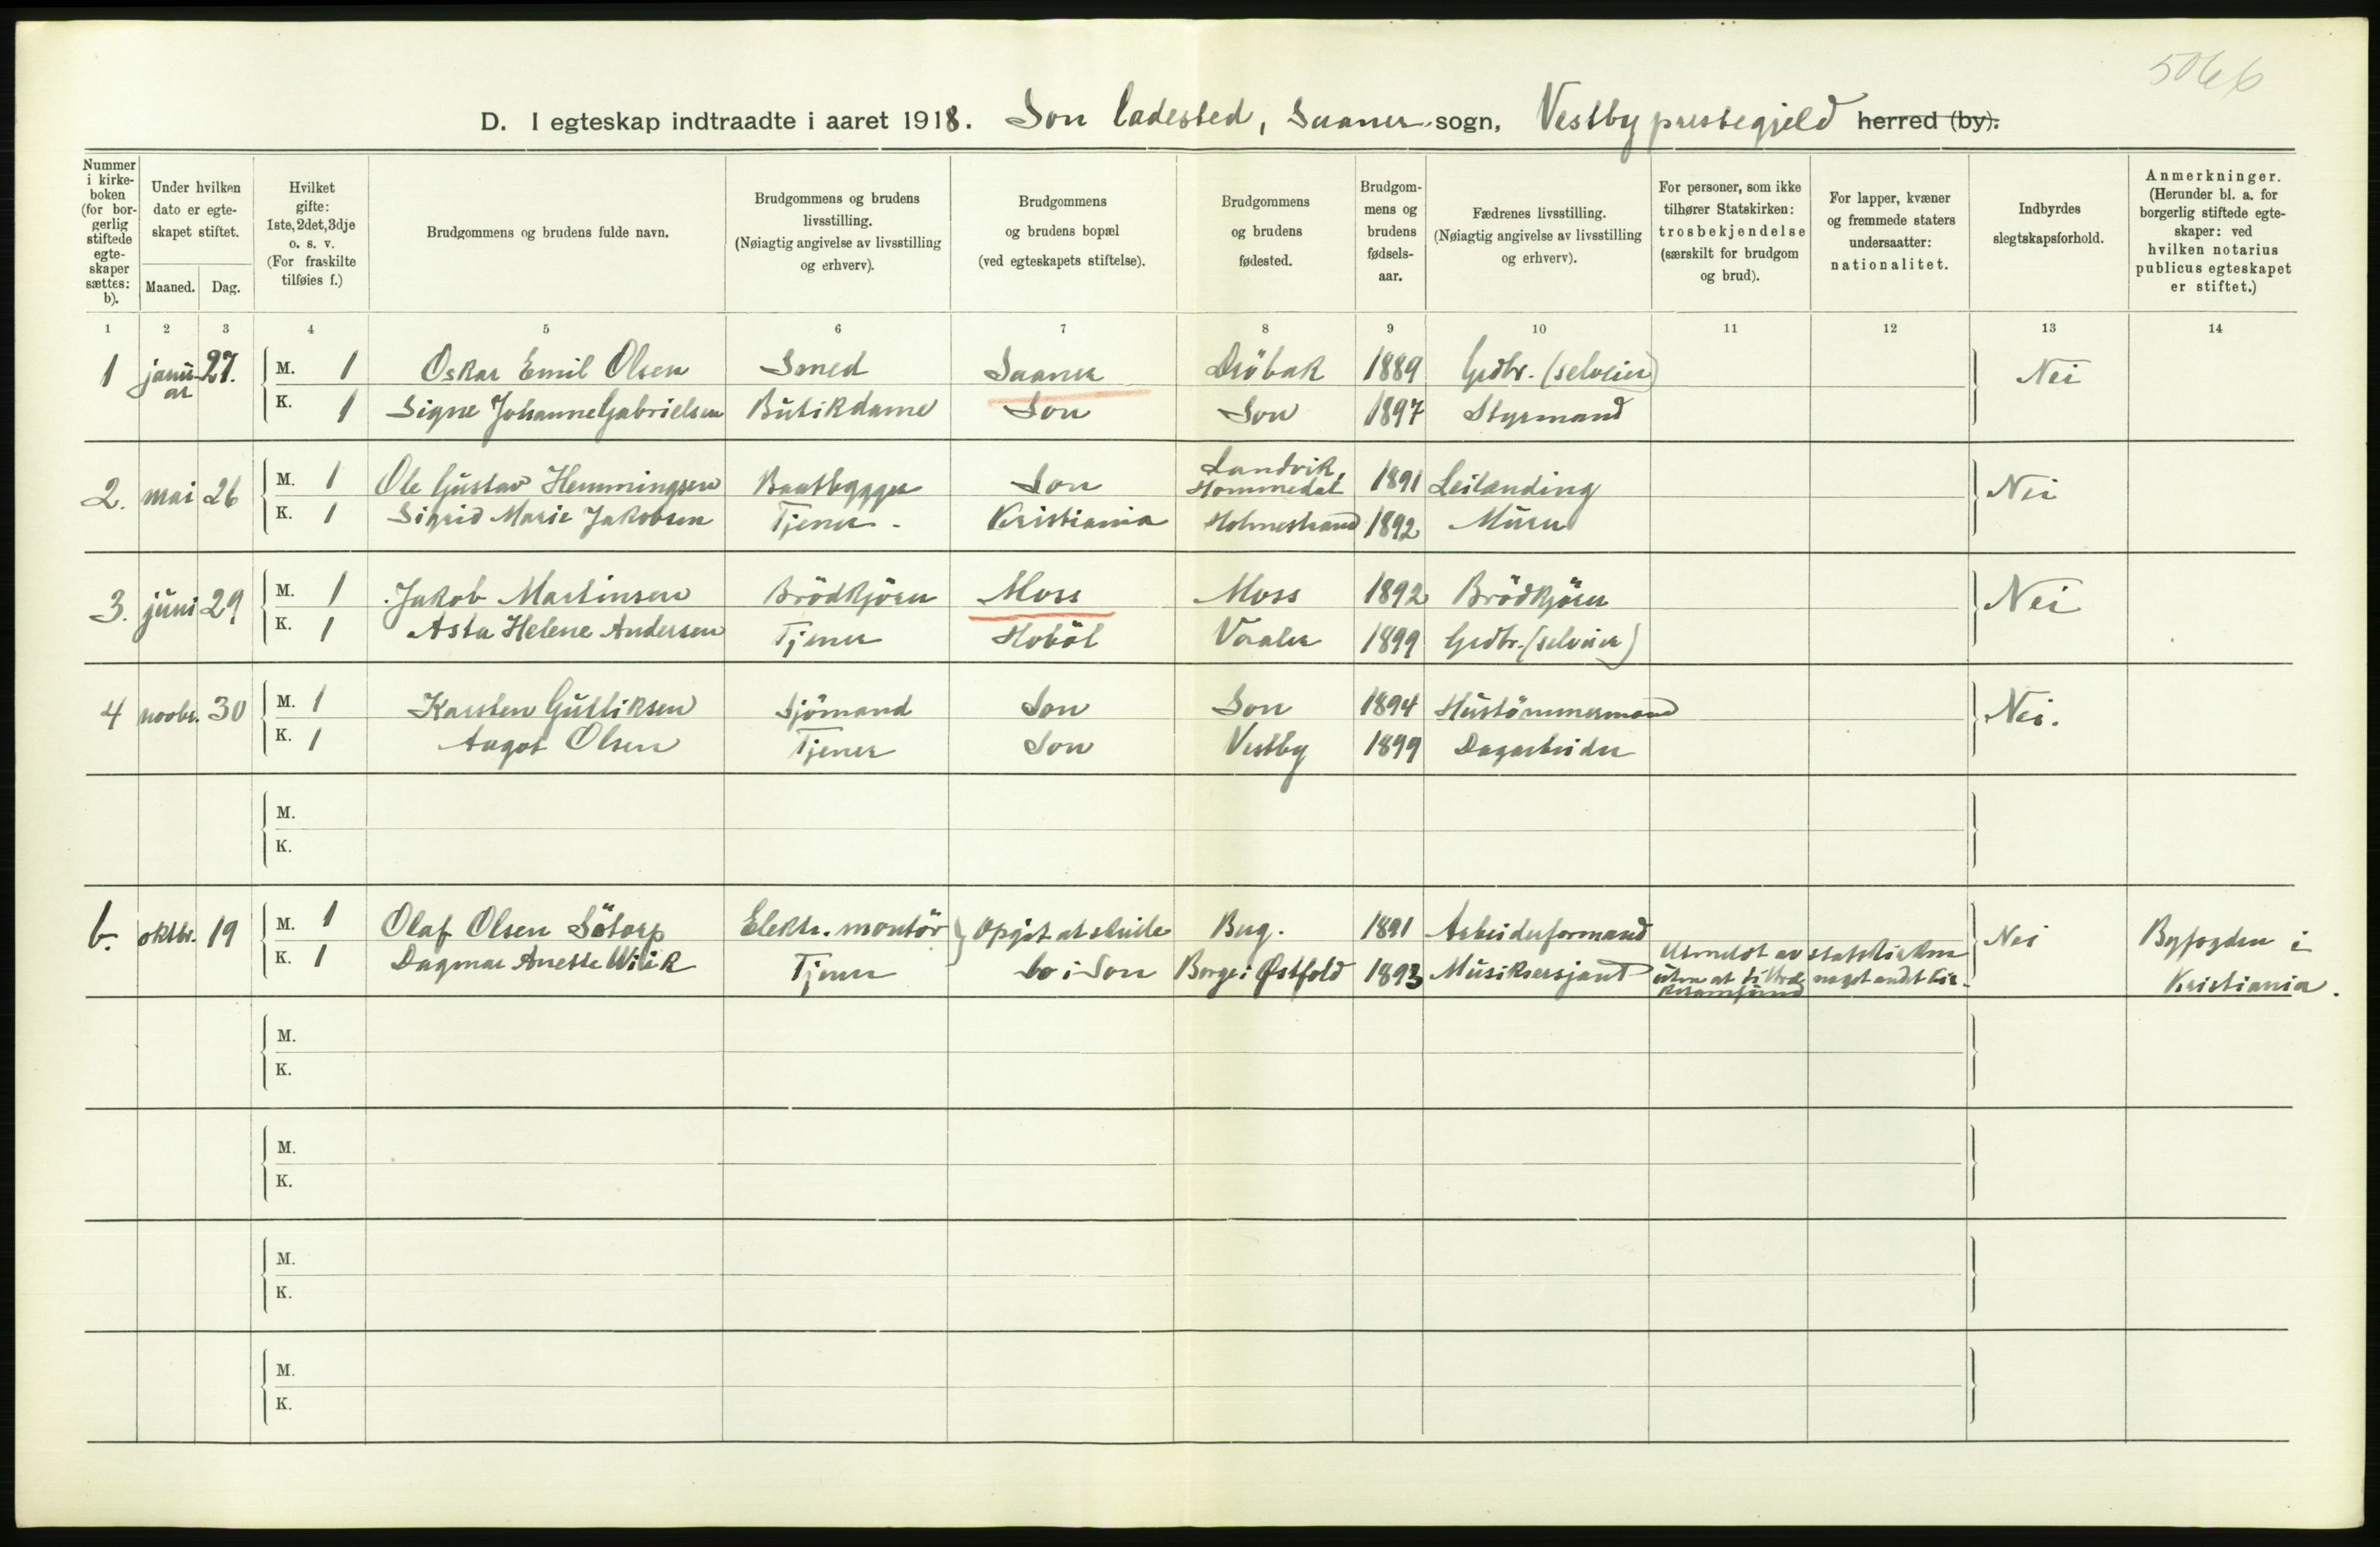 5066
D. I egteskap indtraadte i aaret 1918. Son ladested, Saaner sogn, Vestby prestegjeld herred (by).
Nummer i kirke-boken (for bor-gerlig stiftede egte-skaper sættes: b).
Under hvilken dato er egte-skapet stiftet.
Maaned. Dag.
Hvilket gifte: 1ste, 2det, 3dje o. s. v. (For fraskilte tilføies f.)
Brudgommens og brudens fulde navn.
Brudgommens og brudens livsstilling. (Nøiagtig angivelse av livsstilling og erhverv).
Brudgommens og brudens bopæl (ved egteskapets stiftelse).
Brudgommens og brudens fødested.
Brudgom-mens og brudens fødsels-aar.
Fædrenes livsstilling. (Nøiagtig angivelse av livsstilling og erhverv).
For personer, som ikke tilhører Statskirken: trosbekjendelse (særskilt for brudgom og brud).
For lapper, kvæner og fremmede staters undersaatter: nationalitet.
Indbyrdes slegtskapsforhold.
Anmerkninger. (Herunder bl. a. for borgerlig stiftede egte-skaper: ved hvilken notarius publicus egteskapet er stiftet.)
1 2 3 4 5 6 7 8 9 10 11 12 13 14
1 januar 27. M. 1 Oskar Emil Olsen Smed Saaner Dröbak 1889 Grdbr. (selveier) Nei
K. 1 Signe Johanne Gabrielsen Butikdame Son Son 1897 Styrmand
2. mai 26 M. 1 Ole Gustav Hemmingsen Baatbygger Son Landvik, Hommedal 1891 Leilænding Nei
K. 1 Sigrid Marie Jakobsen Tjener - Kristiania Holmestrand 1892 Murer
3. juni 29 M. 1 Jakob Martinsen Brödkjörer Moss Moss 1892 Brödkjörer Nei
K. 1 Asta Helene Andersen Tjener Hoböl Vaaler 1899 Grdbr. (selveier)
4 novbr. 30 M. 1 Karsten Gulliksen Sjömand Son Son 1894 Hustömmermand Nei.
K. 1 Aagot Olsen Tjener Son Vestby 1899 Dagarbeider
M.
K.
b. oktbr. 19 M. 1 Olaf Olsen Sötorp Elektr. montör Opgit at skulle Berg. 1891 Arbeiderformand Nei Byfogden i
K. 1 Dagmar Anette Wiik Tjener bo i Son Borge i Østfold 1893 Musiksersjant Utmeldt av statskirken uten at tiltræde noget andet kir-kesamfund Kristiania.
M.
K.
M.
K.
M.
K.
M.
K.